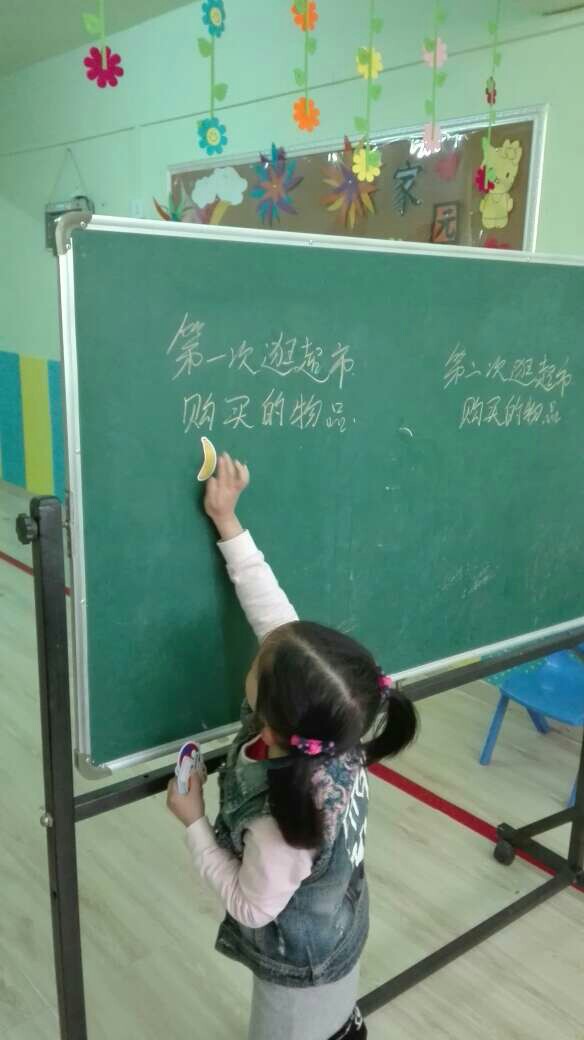 家
园
第一次逛超市
购买的物品
第二次逛超市
购买的物品